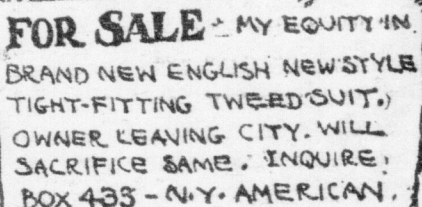 FOR SALE - MY EQUITY IN
BRAND NEW ENGLISH NEW STYLE
TIGHT-FITTING TWEED SUIT.
OWNER LEAVING CITY. WILL
SACRIFICE SAME. INQUIRE,
BOX 435 - N.Y. AMERICAN.